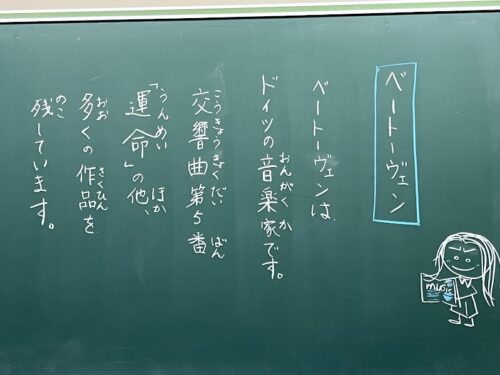 ベートーヴェン
ベートーヴェンは、
ドイツの音楽家です。
おんがくか
交響曲第5番
こうきょうきょくだい ばん
「運命」の他、
うんめい ほか
多くの作品を
おお さくひん
残しています。
のこ
music